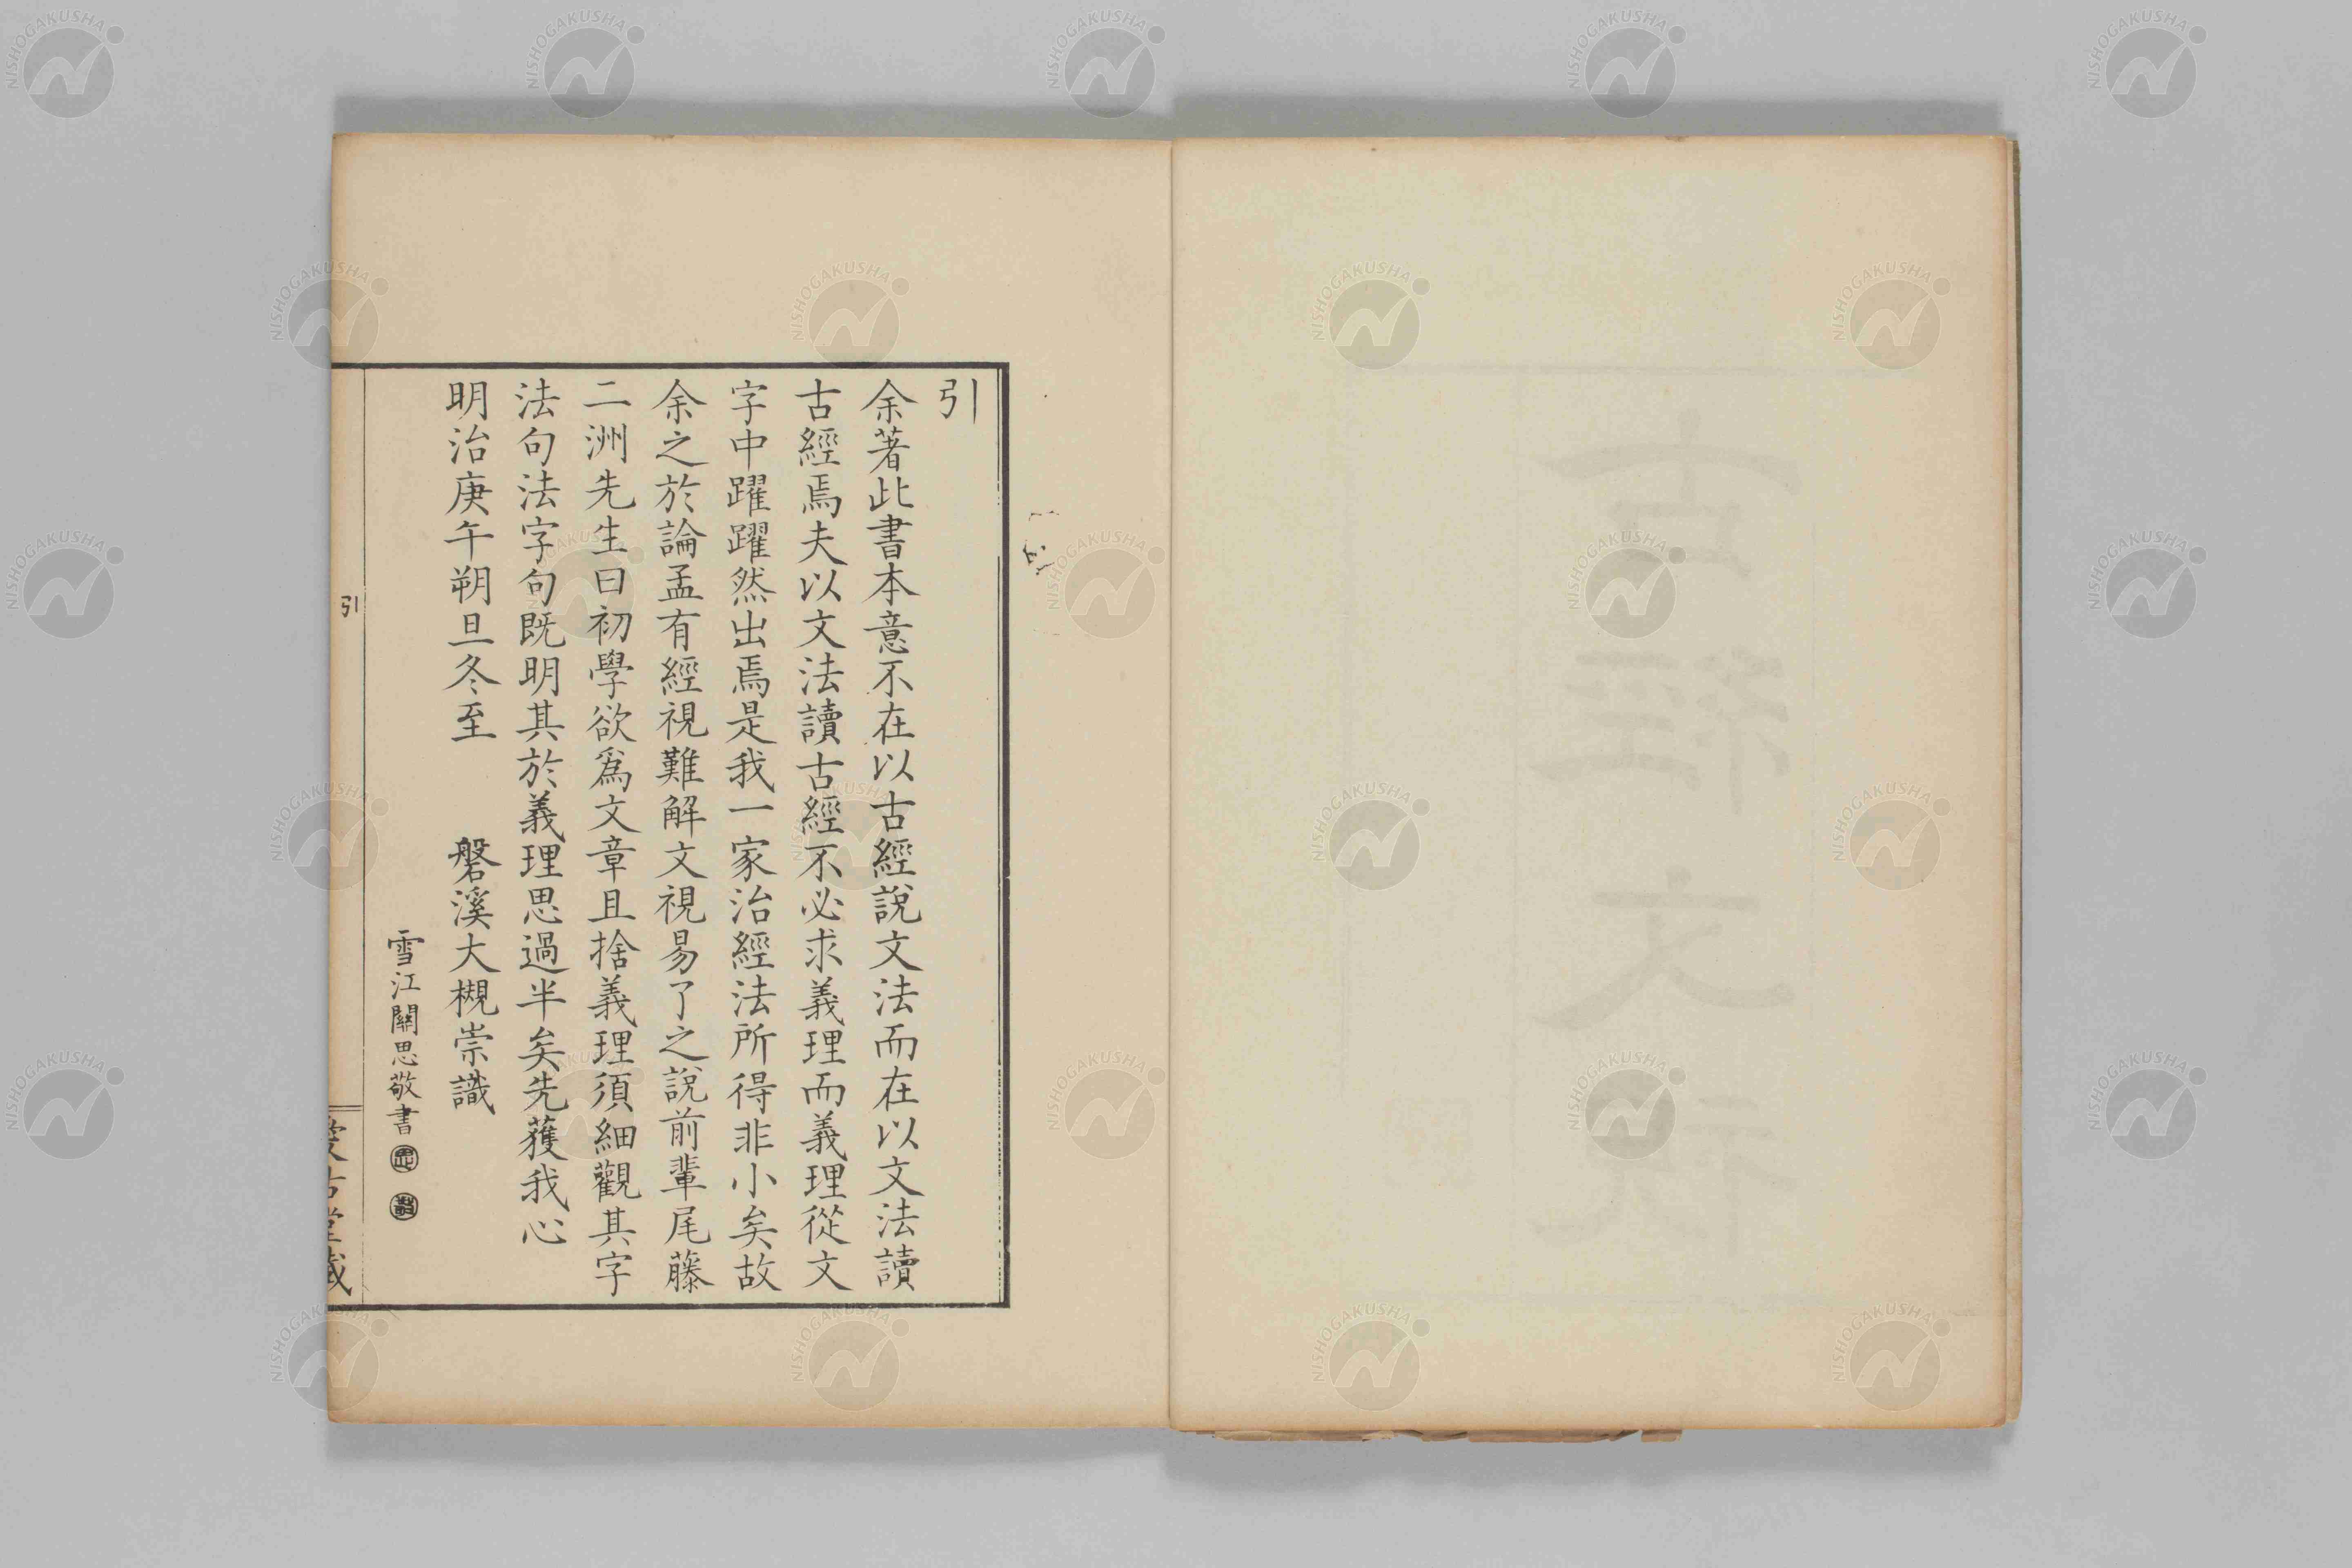 引
余著此書本意不在以古經說文法而在以文法讀
古經焉夫以文法讀古經不必求義理而義理從文
字中躍躍然出焉是我一家治經法所得非小矣故
余之於論孟有經視難解文視易了之說前輩尾藤
二洲先生曰初學欲爲文章且捨義理須細觀其字
法句法字句既明其於義理思過半矣先獲我心
明治庚午朔旦冬至 磐溪大槻崇識
雪江關思敬書 思 敬
引
愛古堂藏
NISHOGAKUSHA